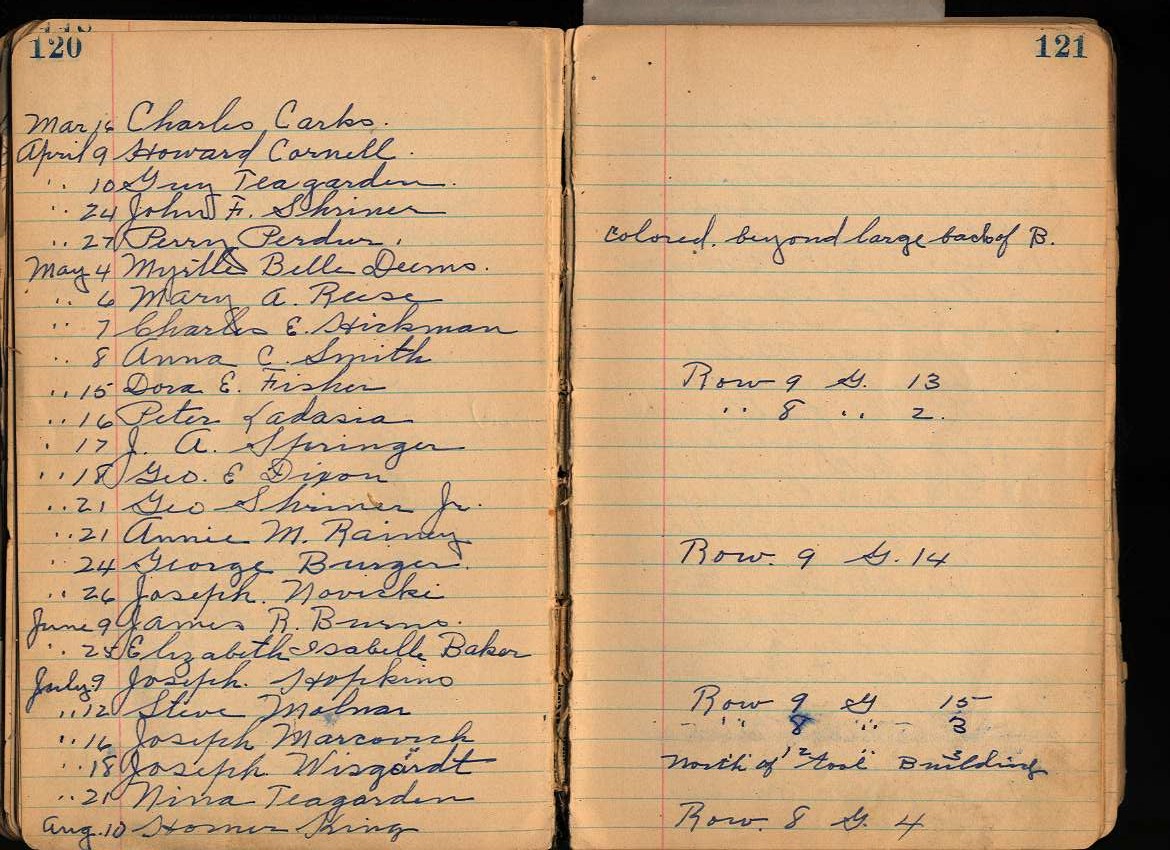 120
Mar 16 Charles Carks.
April 9 Howard Cornell.
" 10 Guy Teagarden.
" 24 John F. Shriner
" 27 Perry Perdur.
May 4 Myrtle Belle Deems.
" 6 Mary A. Reese
" 7 Charles E. Hickman
" 8 Anna C. Smith
" 15 Dora E. Fisher
" 16 Peter Ladasia
" 17 J. A. Springer
" 18 Geo. E Dixon
" 21 Geo Shriner Jr.
" 21 Annie M. Rainey
" 24 George Burger.
" 26 Joseph. Noviski
June 9 James R. Burns.
" 25 Elizabeth Isabelle Baker
July 9 Joseph. Hopkins
" 12 Steve Molnar
" 16 Joseph Marcovich
" 18 Joseph. Wisgardt
" 21 Nina Teagarden
Aug. 10 Homer King
121
colored. beyond large back of B.
Row 9 G. 13
" 8 " 2.
Row. 9 G. 14
Row 9 G 15
" 8 " 3
" 12 " 3
North of Tool Building
Row. 8 G. 4